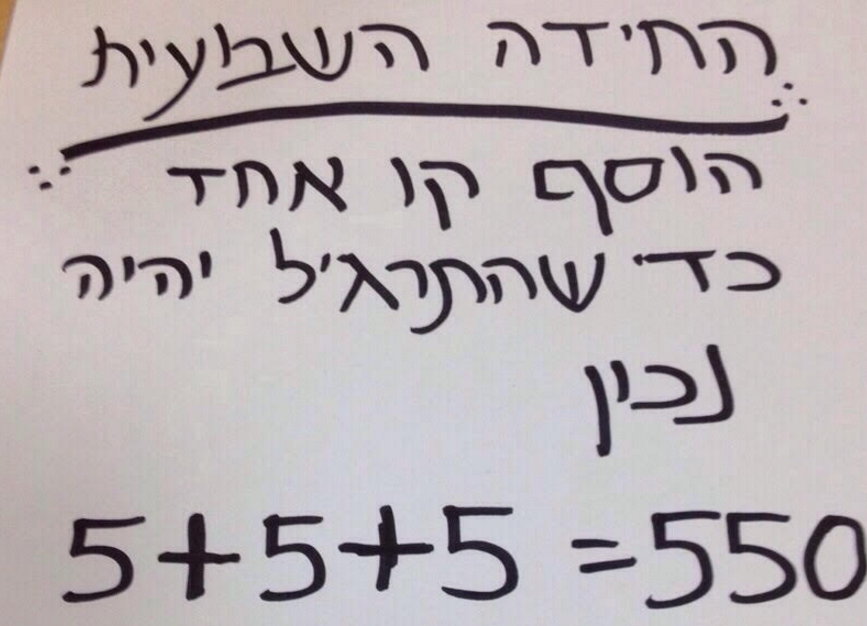 החידה השבועית
הוסף קו אחד
כדי שהתרגיל יהיה
נכון
5+5+5=550